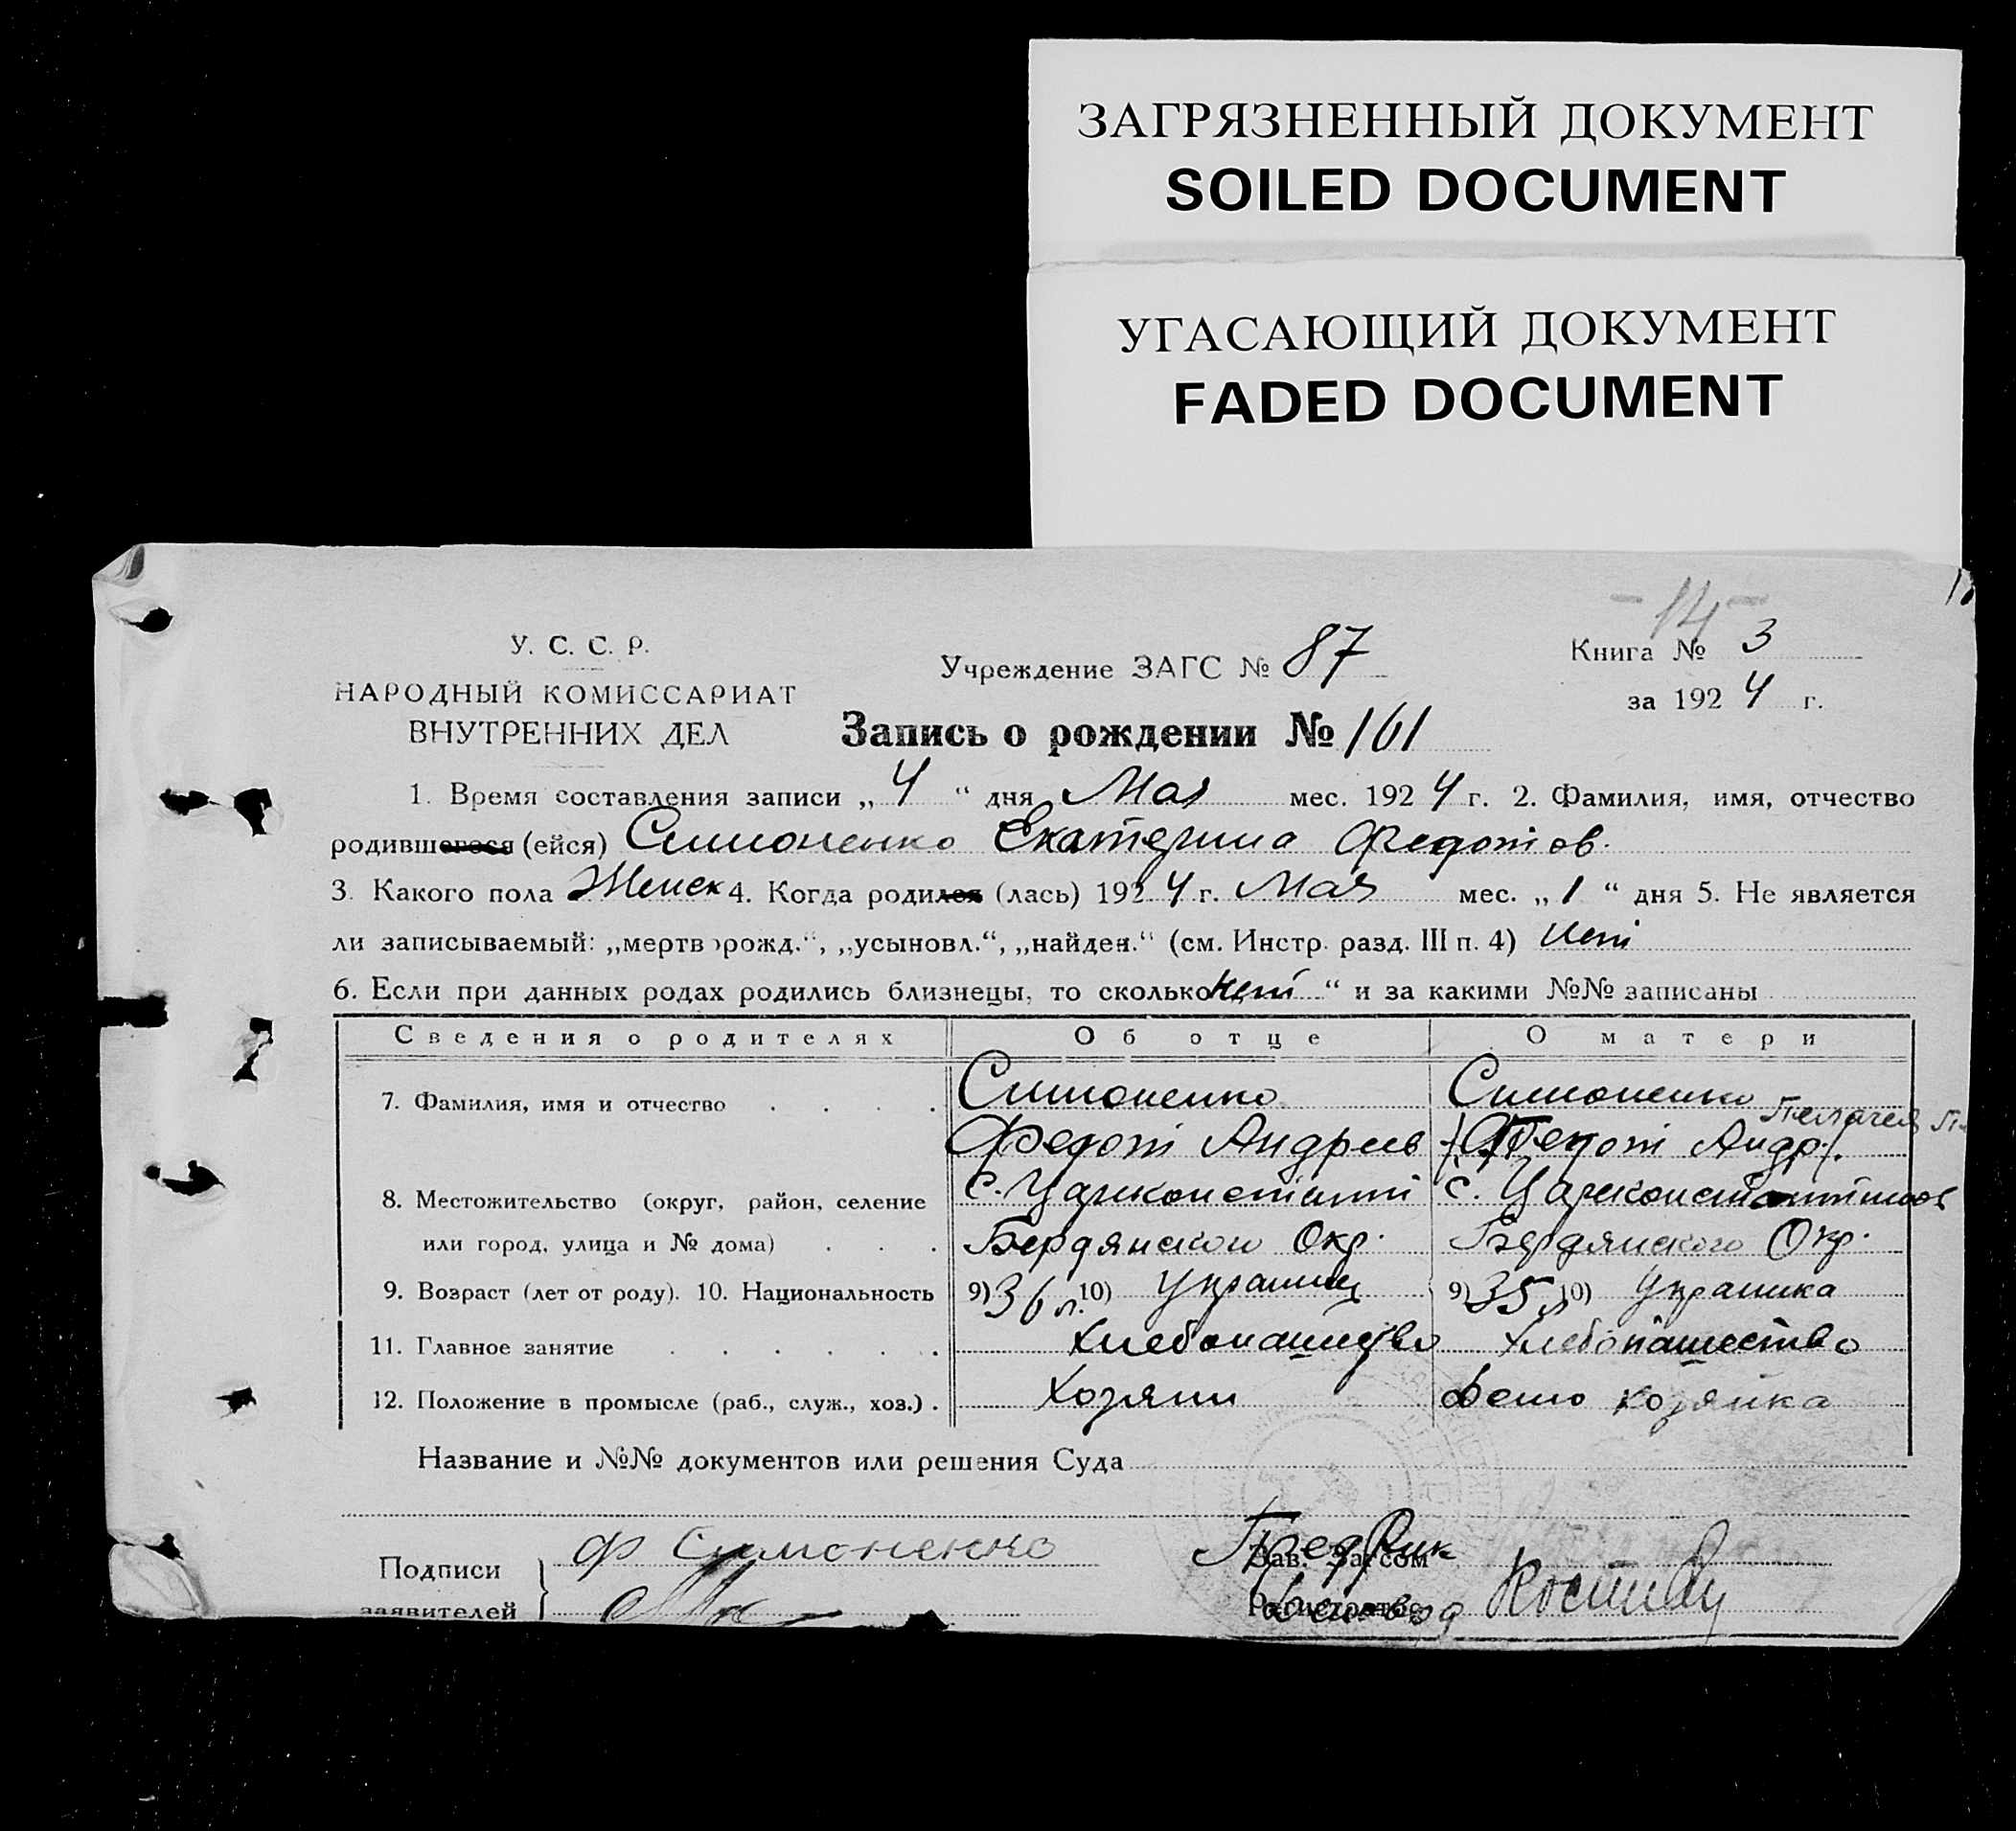 ЗАГРЯЗНЕННЫЙ ДОКУМЕНТ
SOILED DOCUMENT
УГАСАЮЩИЙ ДОКУМЕНТ
FADED DOCUMENT
- 14 -
У. С. С. Р.
НАРОДНЫЙ КОМИССАРИАТ
ВНУТРЕННИХ ДЕЛ
Учреждение ЗАГС № 87
Книга № 3
за 1924 г.
Запись о рождении № 161
1. Время составления записи „4“ дня Мая мес. 1924 г. 2. Фамилия, имя, отчество
родившегося (ейся) Симоненко Екатерина Федотов.
3. Какого пола Женск 4. Когда родился (лась) 1924 г. Мая мес. „1“ дня 5. Не является
ли записываемый: „мертворожд.“, „усыновл.“, „найден.“ (см. Инстр. разд. III п. 4) нет
6. Если при данных родах родились близнецы, то сколько нет “ и за какими №№ записаны
Сведения о родителях Об отце О матери
7. Фамилия, имя и отчество . . . . Симоненко Симоненко Пелагея
Федот Андрев (Федот Андр).
8. Местожительство (округ, район, селение с. Цареконстант с. Цареконстантинов
или город, улица и № дома) . . . Бердянского Окр. Бердянского Окр.
9. Возраст (лет от роду). 10. Национальность 9) 36 л. 10) Украинец 9) 35 л 10) Украинка
11. Главное занятие . . . . . . Хлебопашество хлебопашество
12. Положение в промысле (раб., служ., хоз.) . Хозяин хозяйка
Название и №№ документов или решения Суда
Подписи
заявителей
Ф Симоненко
Пред Рик
Зав. Загсом
Регистратор